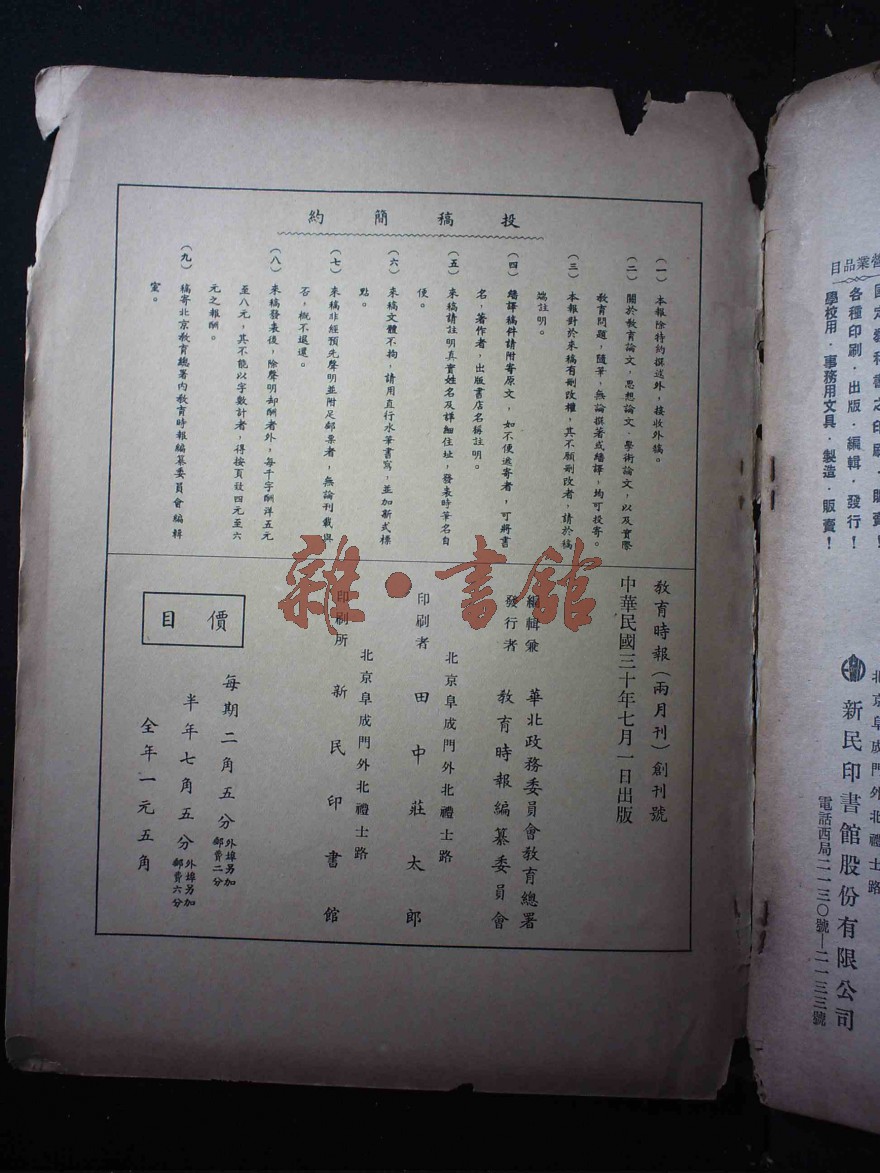 投稿簡約
（一）本報除特約撰述外，接收外稿。
（二）關於教育論文，思想論文，學術論文，以及實際
教育問題，隨筆，無論撰著或繙譯，均可投寄。
（三）本報對於來稿有刪改權，其不願刪改者，請於稿
端註明。
（四）繙譯稿件請附寄原文，如不便遞寄者，可將書
名，著作者，出版書店名稱註明。
（五）來稿請註明真實姓名及詳細住址，發表時筆名自
便。
（六）來稿文體不拘，請用直行水筆書寫，並加新式標
點。
（七）來稿非經預先聲明並附足郵票者，無論刊載與
否，概不退還。
（八）來稿發表後，除聲明却酬者外，每千字酬洋五元
至八元，其不能以字數計者，得按頁致四元至六
元之報酬。
（九）稿寄北京教育總署內教育時報編纂委員會編輯
室。
教育時報（兩月刊）創刊號
中華民國三十年七月一日出版
編輯兼 華北政務委員會教育總署
發行者 教育時報編纂委員會
北京阜成門外北禮士路
印刷者 田中莊太郎
北京阜成門外北禮士路
印刷所 新民印書館
價目
每期二角五分 外埠另加郵費二分
半年七角五分 外埠另加郵費六分
全年一元五角
雜·書館
營業品目
國定教科書之印刷·販賣！
各種印刷·出版·編輯·發行！
學校用·事務用文具·製造·販賣！
北京阜成門外北禮士路
新民印書館股份有限公司
電話西局二一三〇號—二一三三號